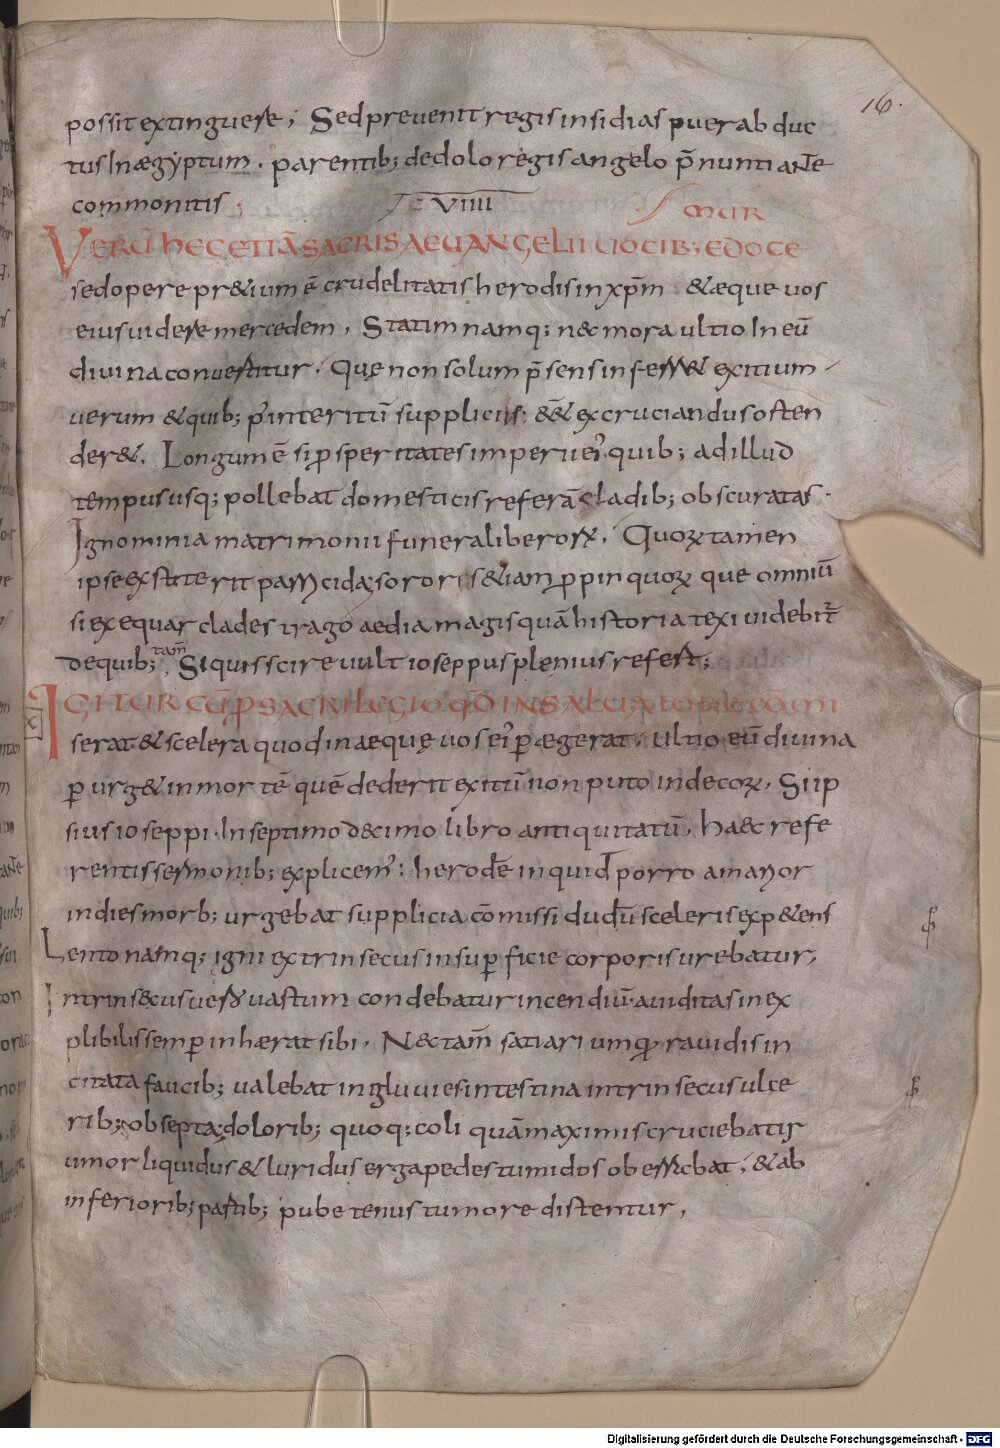 16.
possit extinguere; Sed prevenit regis insidias puer ab duc
tus In ægyptum. parentib; dedolo regis angelo p̄nuntiante
commonitis;
VIIII
mur
VERŪ HEC ETIĀ SACRIS AEVANGELII VOCIB; EDOCE
sed opere pr&ium ē crudelitatis herodis in xp̄m &æque uos
eius uidere mercedem. Statim namq; nec mora ultio In eū
diuina conuertitur. Quę non solum p̄sens inferr& exitium
uerum & quib; p̄ interitū suppliciis e& excruciandus osten
der&. Longum ē si p̄speritates imperii ei' quib; ad illud
tempus usq; pollebat domesticis referā cladib; obscuratas.
Ignominia matrimonii funera liberorꝝ. Quorꝝ tamen
ipse extiterit parricida; sororis &iam ꝓpinquorꝝ que omniū
si exequar clades tragoaedia magis quā historia texi uidebit̄
de quib; tam̄ Siquis scire uult ioseppus plenius refert;
IGITUR CŪ P̄ SACRILEGIO QD̄ IN SALUATORE COM̄I
serat & scelera quod in aeque uos ei' ꝑægerat. Ultio eū diuina
ꝑurg& in mortē quē dederit exitū non puto indecorꝝ. Si ip
sius ioseppi. In septimo decimo libro antiquitatū. haec refe
rentis sermonib; explicem': herodē inquid porro amaꝛior
indies morb; urgebat supplicia cōmissi dudū sceleris exp&ens
Lento namq; igni extrinsecus in suꝑficie corporis urebatur,
Intrinsecus uero uastum condebatur incendiū. auiditas inex
plibilis semꝑ inhærat sibi. Nec tam̄ satiari umquā rauidis in
citata faucib; ualebat ingluuies intestina intrinsecus ulce
rib; obsepta; dolorib; quoq; coli quā maximis cruciebatis
umor liquidus & luridus erga pedes tumidos oberrabat. & ab
inferiorib; partib; pube tenus tumore distentur,
Digitalisierung gefördert durch die Deutsche Forschungsgemeinschaft - DFG